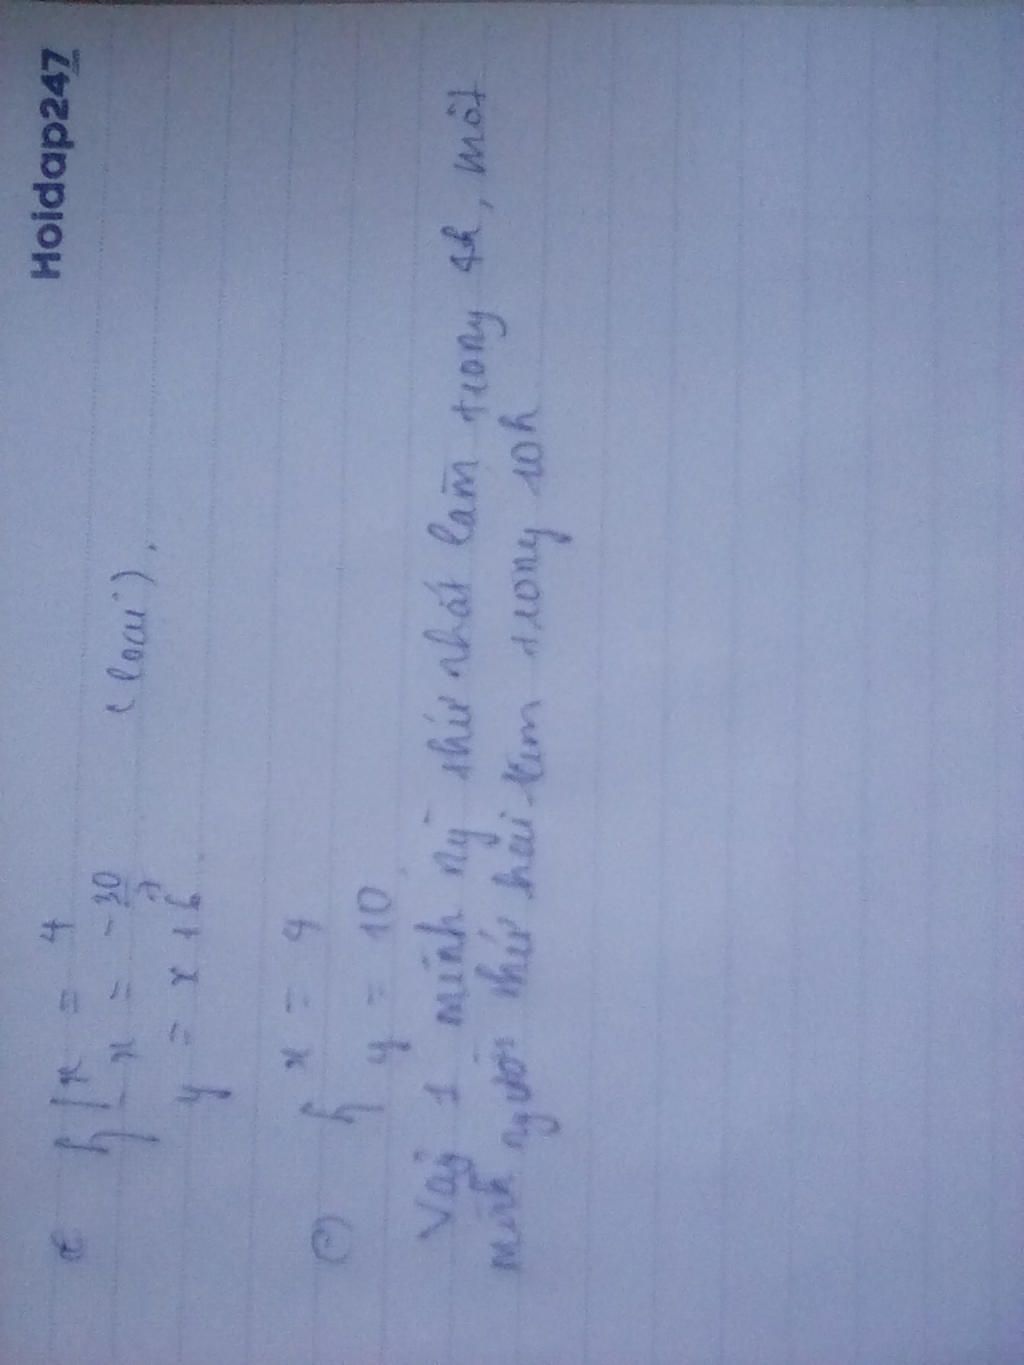 Hoidap247
x = 4
x = -30/7 (loại).
y = x + 6
x = 4
y = 10
Vậy 1 mình ng thứ nhất làm trong 4h, một
mình người thứ hai làm trong 10h